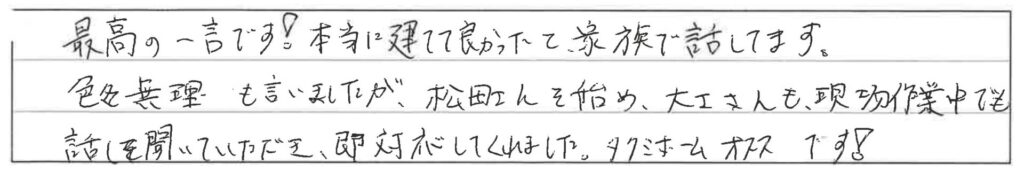 最高の一言です!本当に建てて良かったて、家族で話してます。
色々無理 も言いましたが、松田さんを始め、大工さんも、現場作業中でも
話しを聞いていただき、即対応してくれました。タクミホーム オスス です!